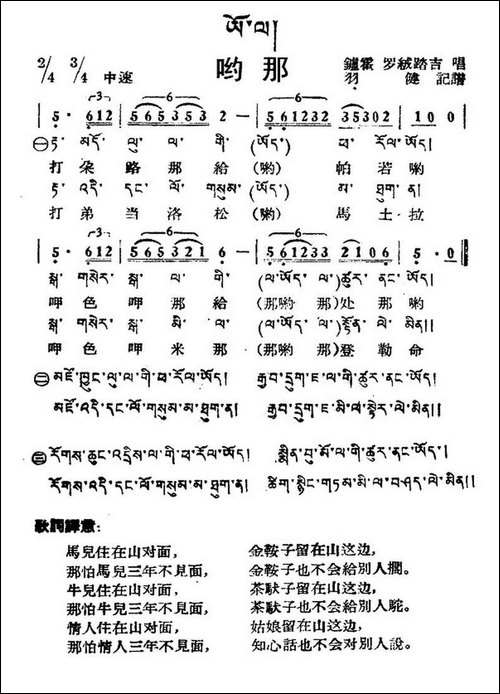 ཨོ་ལ།
哟那
2/4 3/4 中速
鑪霍 罗絨踏吉 唱
羽 健 記譜
㊀ རྟ་ མདོ་ ལུ་ ལ་ གི་ (ཡོད་) ཕ་ རོལ་ཡོད།
打 朶 路 那 給 (喲) 帕 若 喲
རྟ་ འདི་ དང་ ལོ་ གསུམ་ (ཡོད་) མ་ ཐུག་ ན།
打 弟 当 洛 松 (喲) 馬 土 拉
སྒ་ གསེར་ སྒ་ ལ་ གི་ (ལ་ཡོད་ ལ་) ཚུར་ ནང་ ཡོད།
呷 色 呷 那 給 (那喲 那) 处 那 喲
སྒ་ གསེར་ སྒ་ མི་ ལ་ (ལ་ཡོད་ ལ་) སྟོན་ ལེ་ མིན།།
呷 色 呷 米 那 (那喲 那) 登 勒 命
㊁ མཛོ་ཁྱུང་ལུ་ལ་གི་ཕ་རོལ་ཡོད། རྒྱབ་དྲུག་ཇ་ལ་གི་ཚུར་ནང་ཡོད།
མཛོ་འདི་དང་ལོ་གསུམ་མ་ཐུག་ན། རྒྱབ་དྲུག་ཇ་མི་ལ་སྟེར་ལེ་མིན།།
㊂ རོགས་ཆུང་འདྲིས་ལ་གི་ཕ་རོལ་ཡོད། སྨིན་བུ་མོ་ལ་གི་ཚུར་ནང་ཡོད།
རོགས་འདི་དང་ལོ་གསུམ་མ་ཐུག་ན། ཚིག་སྙིང་གཏམ་མི་ལ་བཤད་ལེ་མིན།།
歌詞譯意：
馬兒住在山对面， 金鞍子留在山这边，
那怕馬兒三年不見面， 金鞍子也不会給別人擱。
牛兒住在山对面， 茶馱子留在山这边，
那怕牛兒三年不見面， 茶馱子也不会給別人駝。
情人住在山对面， 姑娘留在山这边，
那怕情人三年不見面， 知心話也不会对別人說。